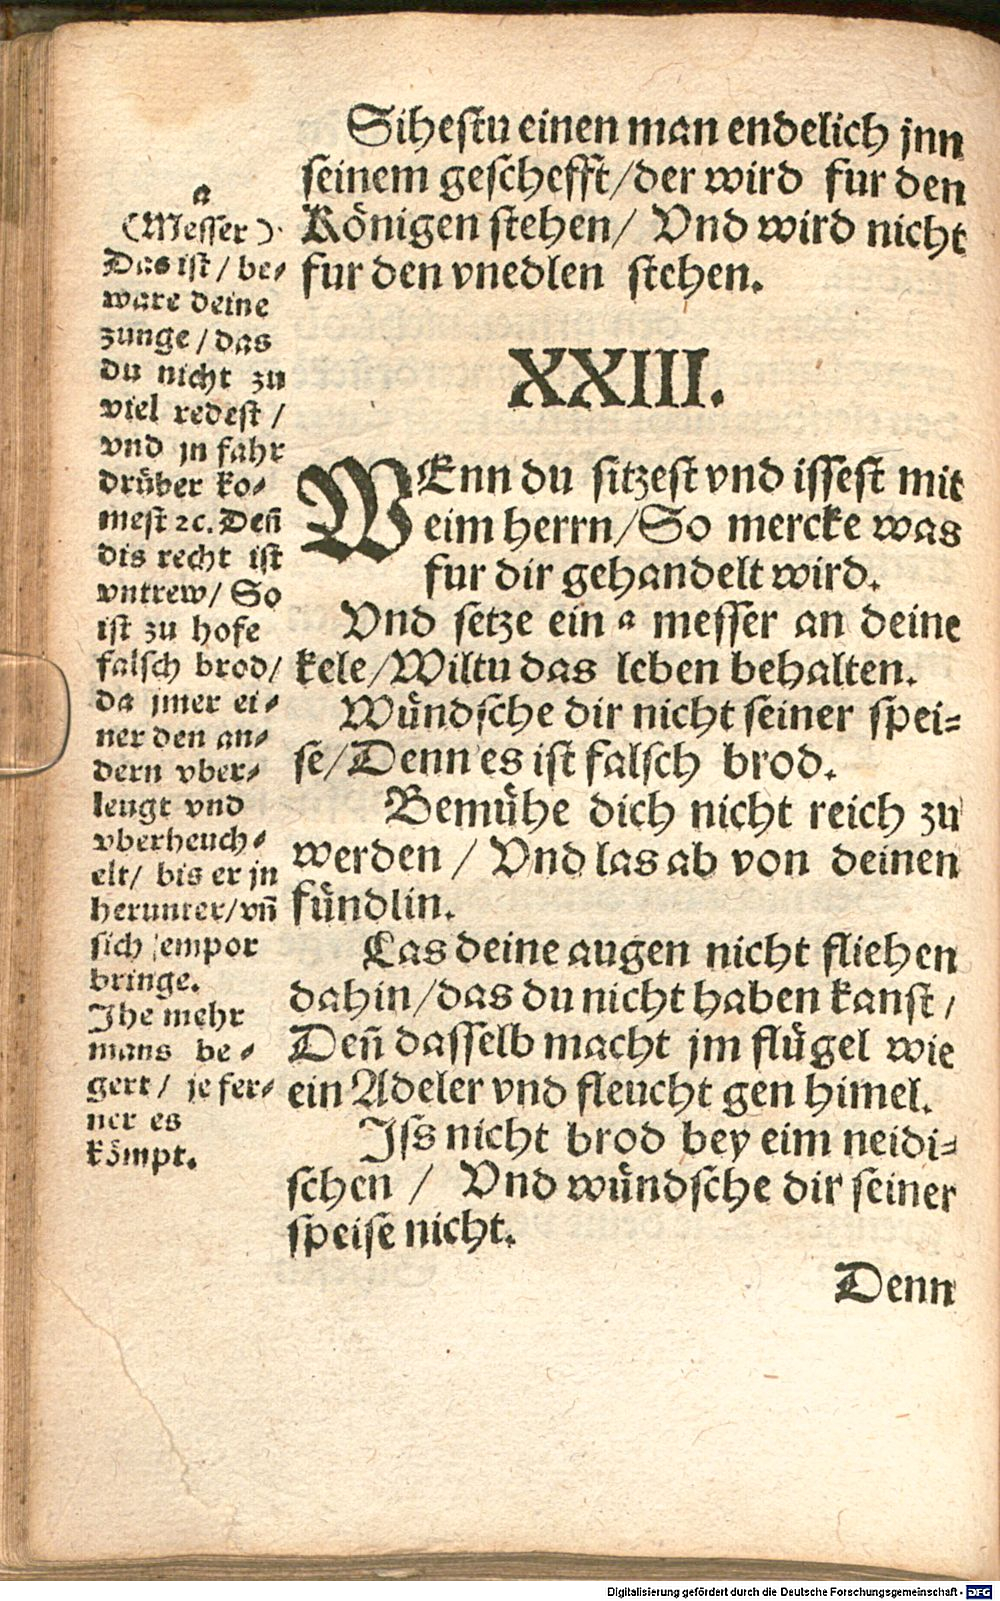 Sihestu einen man endelich jnn
seinem geschefft/der wird fur den
Königen stehen/ Vnd wird nicht
fur den vnedlen stehen.
XXIII.
WEnn du sitzest vnd issest mit
eim herrn/So mercke was
fur dir gehandelt wird.
Vnd setze ein a messer an deine
kele/Wiltu das leben behalten.
Wündsche dir nicht seiner spei=
se/Denn es ist falsch brod.
Bemühe dich nicht reich zu
werden / Vnd las ab von deinen
fündlin.
Las deine augen nicht fliehen
dahin/das du nicht haben kanst/
Deñ dasselb macht jm flügel wie
ein Adeler vnd fleucht gen himel.
Jss nicht brod bey eim neidi=
schen / Vnd wündsche dir seiner
speise nicht.
Denn
a
(Messer)
Das ist/ be=
ware deine
zunge/das
du nicht zu
viel redest/
vnd jn fahr
drüber ko=
mest 2c. Deñ
dis recht ist
vntrew/ So
ist zu hofe
falsch brod/
da jmer ei=
ner den an=
dern vber=
leugt vnd
vberheuch=
elt/ bis er jn
herunter/vñ
sich empor
bringe.
Jhe mehr
mans be=
gert/ je fer=
ner es
kömpt.
Digitalisierung gefördert durch die Deutsche Forschungsgemeinschaft - DFG